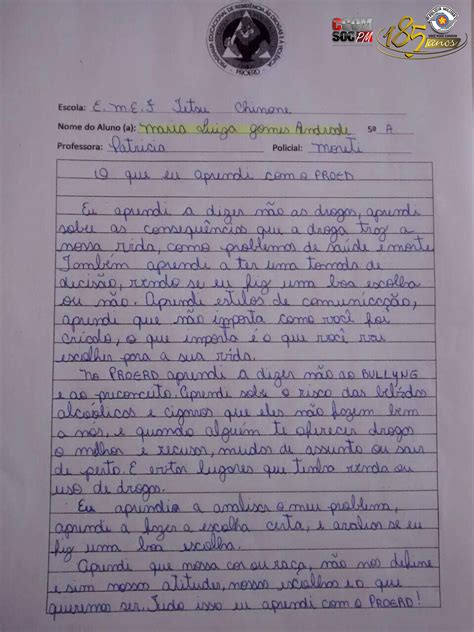 CCOM
SOC PM
185 anos
PROERD
Escola: E.M.E.F Tetsu Chinone
Nome do Aluno (a): Maria Luiza Gomes Andrade 5º A
Professora: Patricia Policial: Moreti
O que eu aprendi com o PROED
Eu aprendi a dizer não as drogas, aprendi
sobre as consequências que a droga traz a
nossa vida, como problemas de saúde e morte.
Também aprendi a ter uma tomada de
decisão, vendo se eu fiz uma boa escolha
ou não. Aprendi estilos de comunicação,
aprendi que não importa como você foi
criado, o que importa é o que você vai
escolher para a sua vida.
No PROERD aprendi a dizer não ao BULLYNG
e ao preconceito. Aprendi sobre o risco das bebidas
alcoólicas e cigarros que eles não fazem bem
a nós, e quando alguém te oferecer drogas
o melhor e recusar, mudar de assunto ou sair
de perto. E evitar lugares que tenha venda ou
uso de drogas.
Eu aprendi a analisar o meu problema,
aprendi a fazer a escolha certa, e avaliar se eu
fiz uma boa escolha.
Aprendi que nossa cor ou raça, não nos define
e sim nossas atitudes, nossas escolhas e o que
queremos ser. Tudo isso eu aprendi com o PROERD!